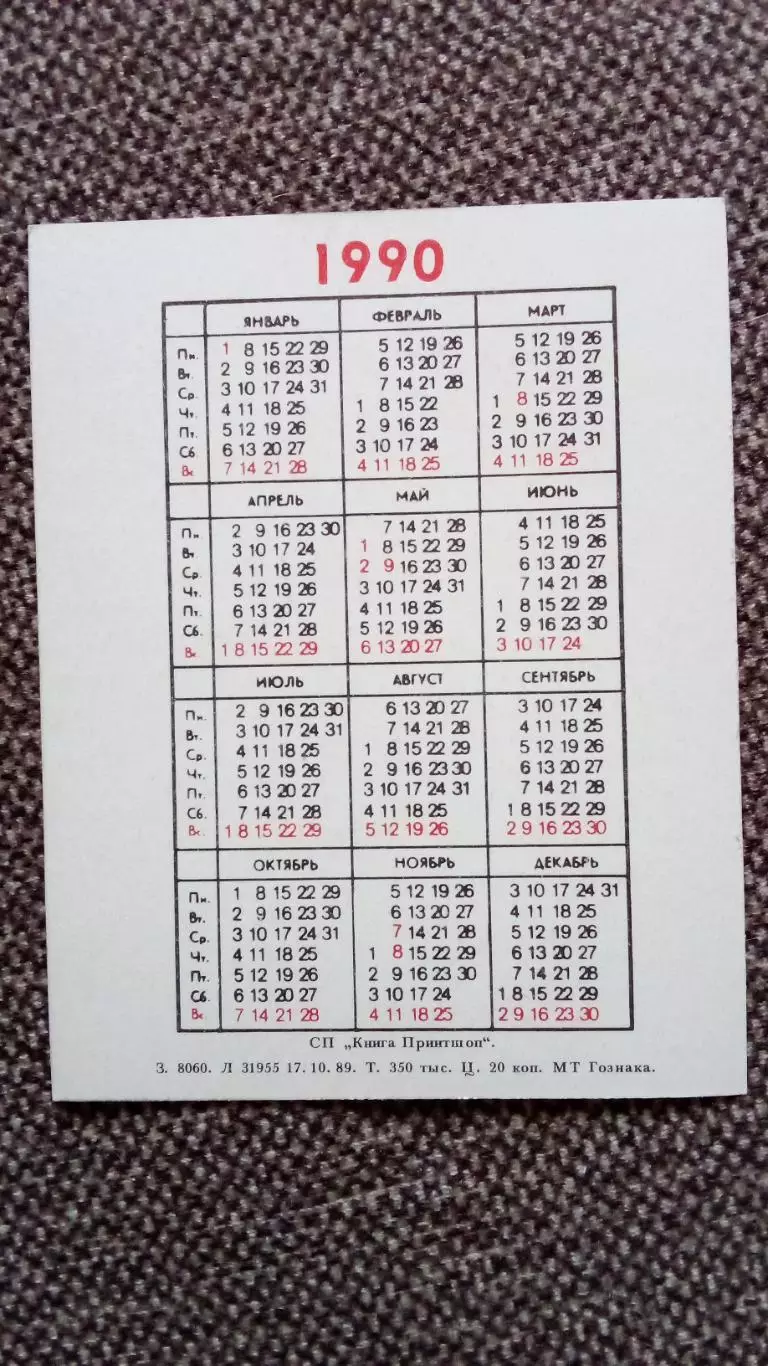 1990
ЯНВАРЬ ФЕВРАЛЬ МАРТ
Пн. 1 8 15 22 29 5 12 19 26 5 12 19 26
Вт. 2 9 16 23 30 6 13 20 27 6 13 20 27
Ср. 3 10 17 24 31 7 14 21 28 7 14 21 28
Чт. 4 11 18 25 1 8 15 22 1 8 15 22 29
Пт. 5 12 19 26 2 9 16 23 2 9 16 23 30
Сб. 6 13 20 27 3 10 17 24 3 10 17 24 31
Вс. 7 14 21 28 4 11 18 25 4 11 18 25
АПРЕЛЬ МАЙ ИЮНЬ
Пн. 2 9 16 23 30 7 14 21 28 4 11 18 25
Вт. 3 10 17 24 1 8 15 22 29 5 12 19 26
Ср. 4 11 18 25 2 9 16 23 30 6 13 20 27
Чт. 5 12 19 26 3 10 17 24 31 7 14 21 28
Пт. 6 13 20 27 4 11 18 25 1 8 15 22 29
Сб. 7 14 21 28 5 12 19 26 2 9 16 23 30
Вс. 1 8 15 22 29 6 13 20 27 3 10 17 24
ИЮЛЬ АВГУСТ СЕНТЯБРЬ
Пн. 2 9 16 23 30 6 13 20 27 3 10 17 24
Вт. 3 10 17 24 31 7 14 21 28 4 11 18 25
Ср. 4 11 18 25 1 8 15 22 29 5 12 19 26
Чт. 5 12 19 26 2 9 16 23 30 6 13 20 27
Пт. 6 13 20 27 3 10 17 24 31 7 14 21 28
Сб. 7 14 21 28 4 11 18 25 1 8 15 22 29
Вс. 1 8 15 22 29 5 12 19 26 2 9 16 23 30
ОКТЯБРЬ НОЯБРЬ ДЕКАБРЬ
Пн. 1 8 15 22 29 5 12 19 26 3 10 17 24 31
Вт. 2 9 16 23 30 6 13 20 27 4 11 18 25
Ср. 3 10 17 24 31 7 14 21 28 5 12 19 26
Чт. 4 11 18 25 1 8 15 22 29 6 13 20 27
Пт. 5 12 19 26 2 9 16 23 30 7 14 21 28
Сб. 6 13 20 27 3 10 17 24 1 8 15 22 29
Вс. 7 14 21 28 4 11 18 25 2 9 16 23 30
СП „Книга Принтшоп".
З. 8060. Л 31955 17. 10. 89. Т. 350 тыс. Ц. 20 коп. МТ Гознака.